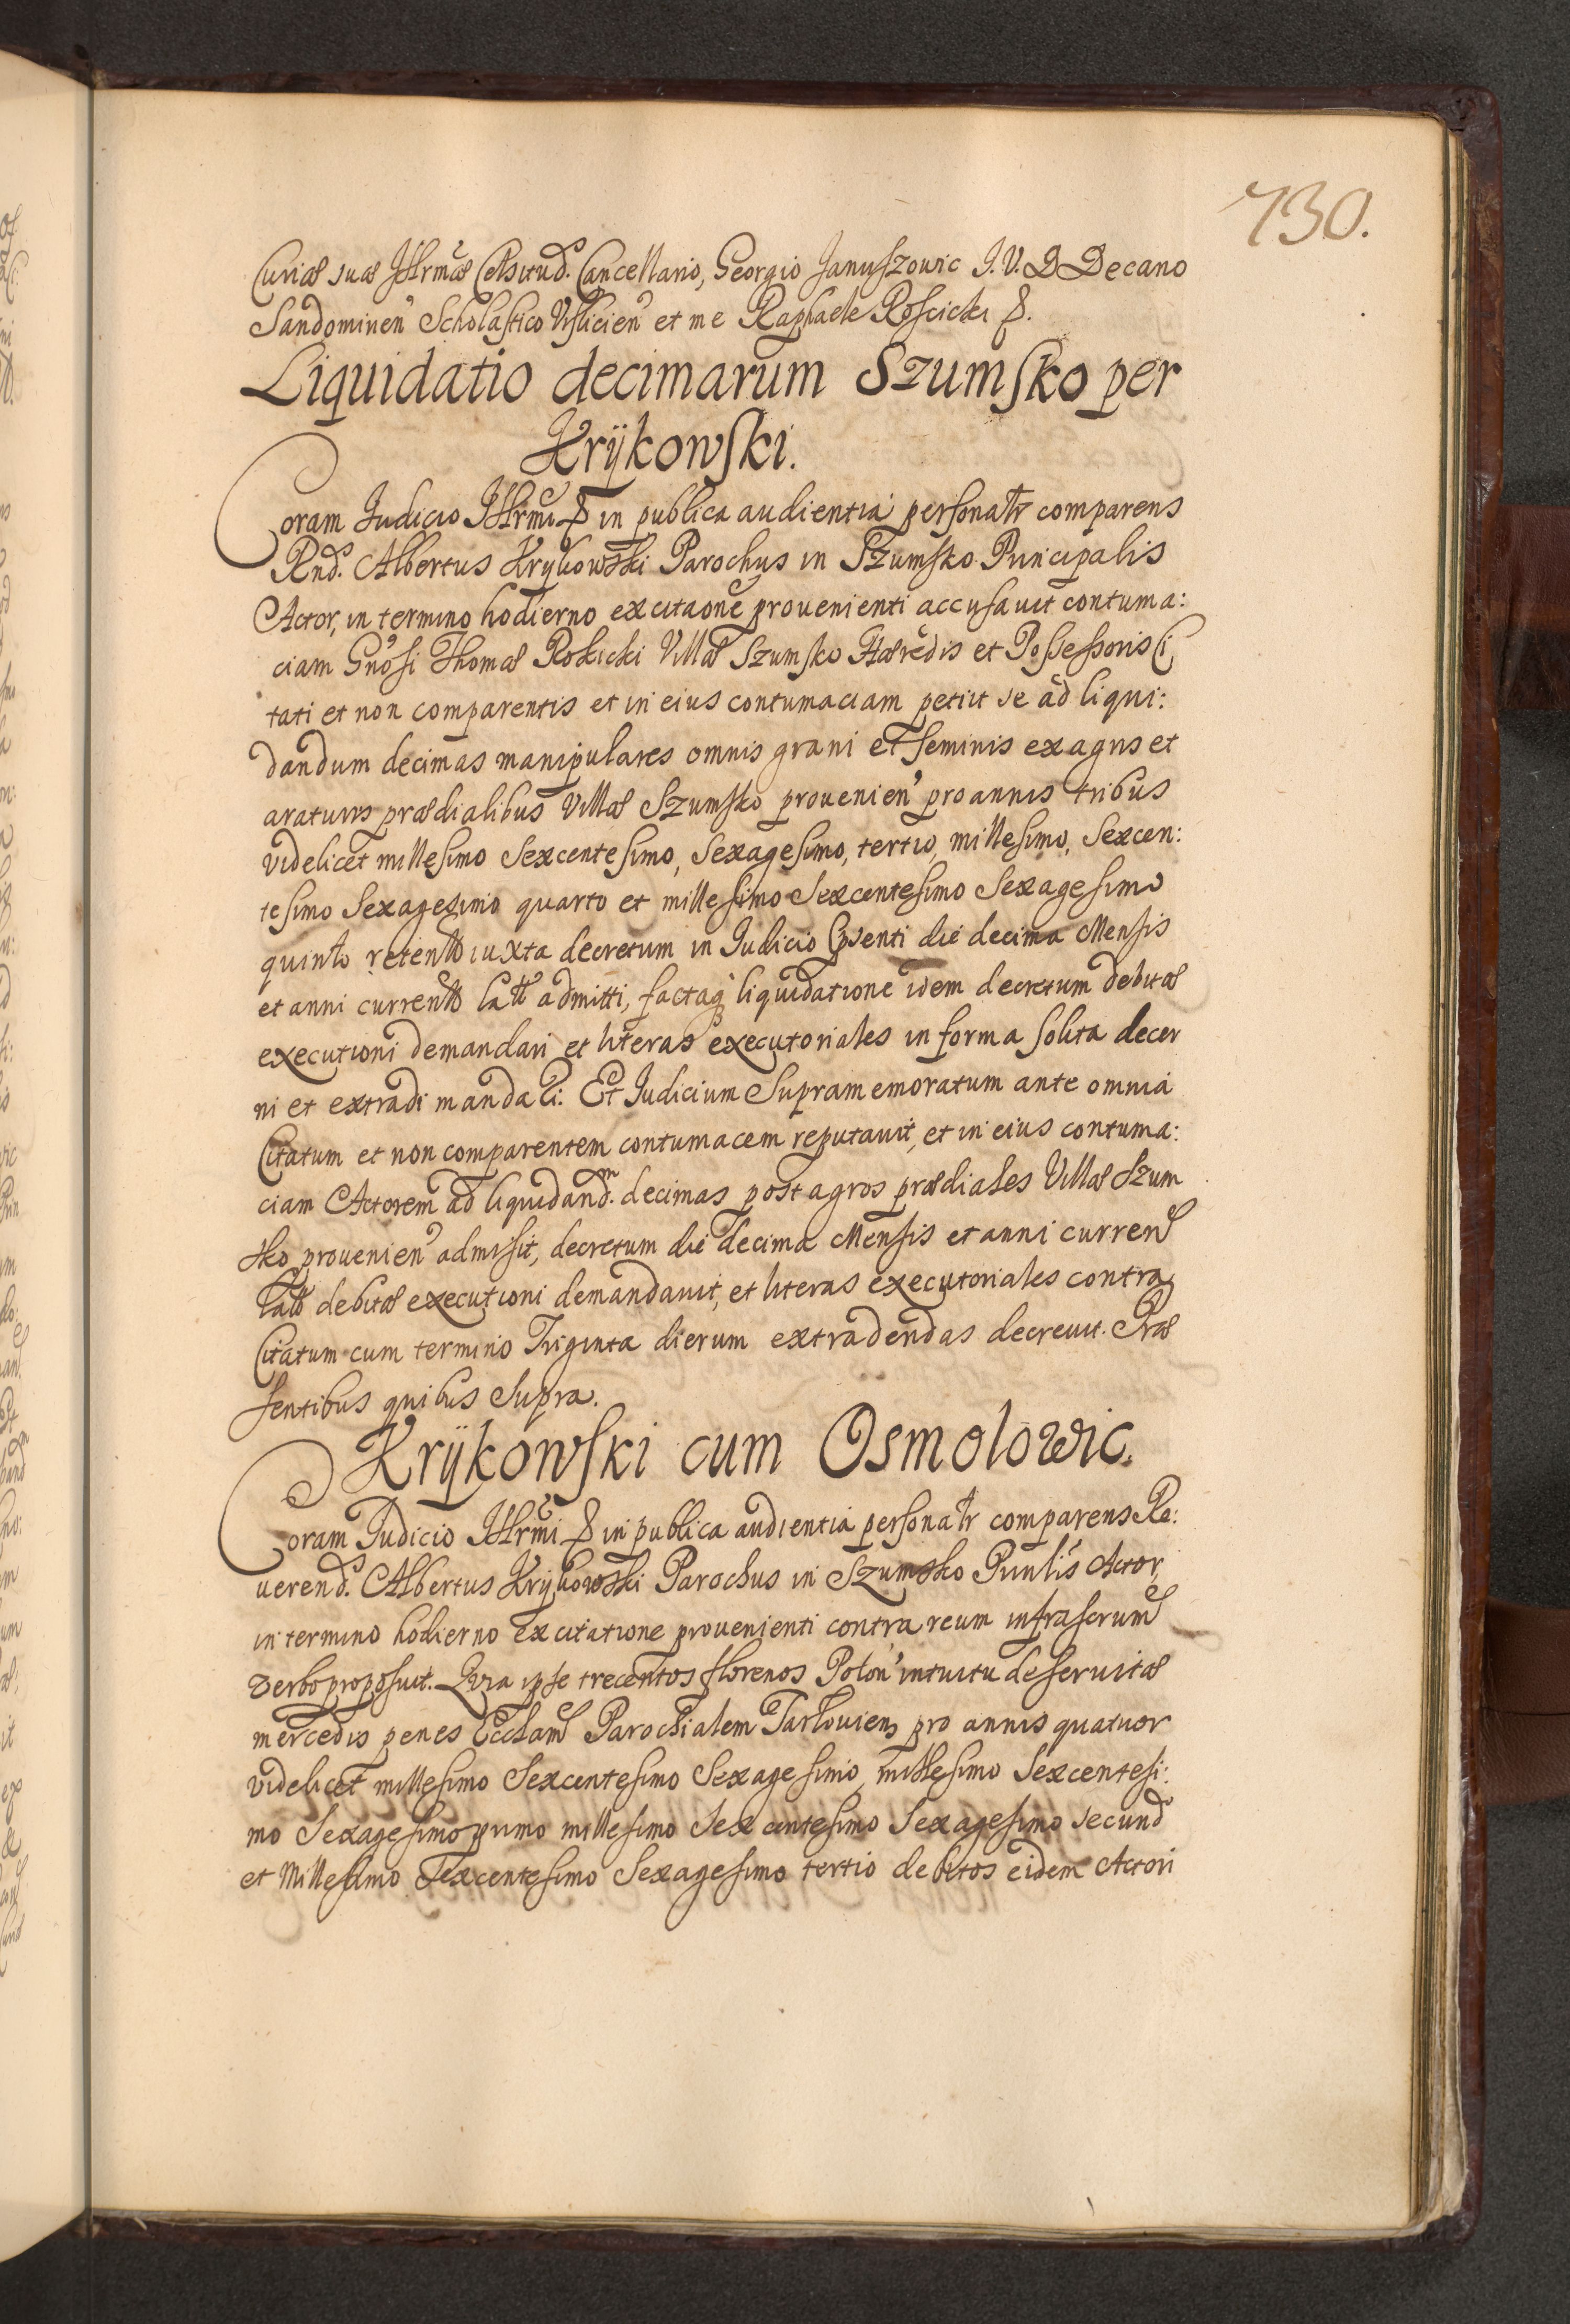 730.
Curiæ suæ Illrmæ Celsitud. Cancellario, Georgio Januszowic I. V. D Decano
Sandomirien Scholastico Vislicien et me Raphaele Roscicki &.
Liquidatio decimarum Szumsko per
Krÿkowski.
Coram Iudicio Illrmi & in publica audientia personatr comparens
Rnd. Albertus Krÿkowski Parochus in Szumsko Principalis
Actor, in termino hodierno ex citaone prouenienti accusauit contuma:
ciam Gnosi Thomæ Rokicki Villæ Szumsko Hæredis et Possessoris Ci
tati et non comparentis et in eius contumaciam petiit se ad liqui:
dandum decimas manipulares omnis grani et seminis ex agris et
araturis prædialibus Villæ Szumsko prouenien pro annis tribus
videlicet millesimo Sexcentesimo, Sexagesimo, tertio, millesimo, Sexcen:
tesimo Sexagesimo quarto et millesimo Sexcentesimo Sexagesimo
quinto retent iuxta decretum in Iudicio psenti die decima Mensis
et anni current latt admitti, factaq liquidatione idem decretum debitæ
executioni demandari et literas executoriales in forma solita decer
ni et extradi mandari: Et Iudicium Supramemoratum ante omnia
Citatum et non comparentem contumacem reputauit, et in eius contuma:
ciam Actorem ad liquidand.m decimas post agros prædiales Villæ Szum
sko prouenien admisit, decretum die decima Mensis et anni curren
latt debitæ executioni demandauit, et literas executoriales contra
Citatum cum termino Triginta dierum extradendas decreuit. Præ
sentibus quibus Supra.
Krÿkowski cum Osmolowic.
Coram Iudicio Illrmi & in publica audientia personatr comparens Re:
uerend. Albertus Krÿkowski Parochus in Szumsko Prinlis Actor,
in termino hodierno ex citatione prouenienti contra reum infrascrum
verbo proposuit. Quia ipse trecentos florenos Polon intuitu deseruitæ
mercedis penes Ecclam Parochialem Tarlouien pro annis quatuor
videlicet millesimo Sexcentesimo Sexagesimo, millesimo Sexcentesi:
mo Sexagesimo primo millesimo Sexcentesimo Sexagesimo secund
et Millesimo Sexcentesimo Sexagesimo tertio debitos eidem Actori